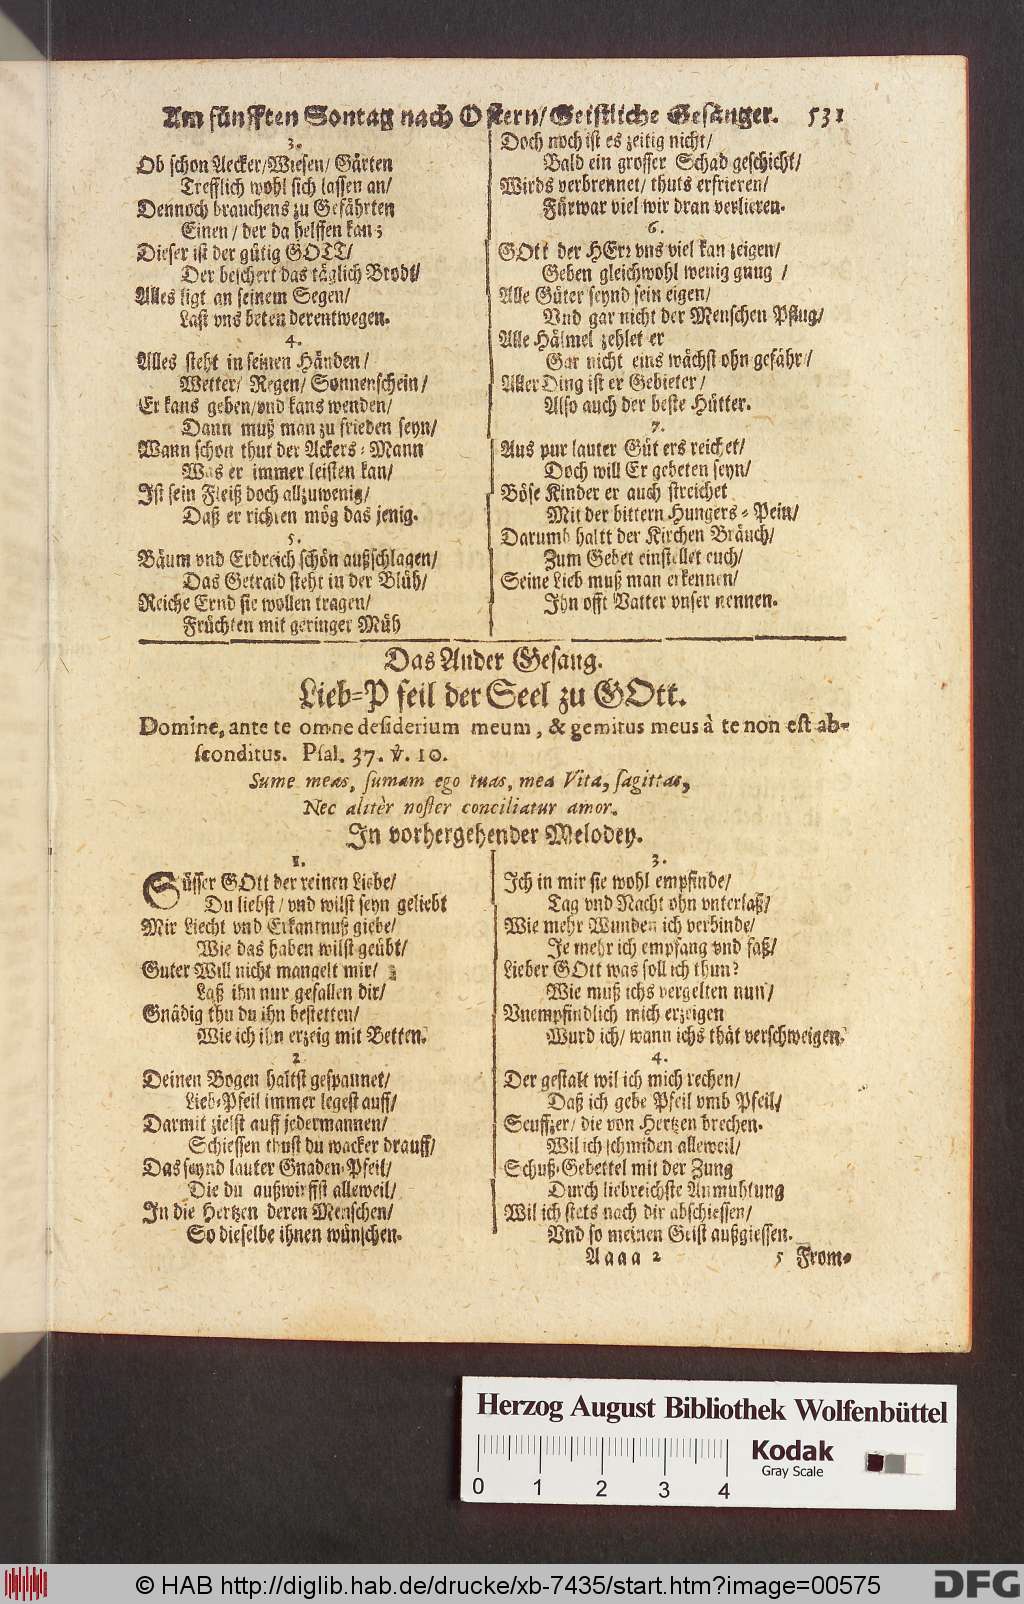 Am fünfften Sontag nach Ostern/ Geistliche Gesänger. 531
3.
Ob schon Aecker/ Wiesen/ Gärten
Trefflich wohl sich lassen an/
Dennoch brauchens zu Gefährten
Einen/ der da helffen kan;
Dieser ist der gütig GOTT/
Der beschert das täglich Brodt/
Alles ligt an seinem Segen/
Last vns beten derentwegen.
4.
Alles steht in seinen Händen/
Wetter/ Regen/ Sonnenschein/
Er kans geben/ vnd kans wenden/
Dann muß man zu frieden seyn/
Wann schon thut der Ackers-Mann
Was er immer leisten kan/
Ist sein Fleiß doch allzuwenig/
Daß er richten mög das jenig.
5.
Bäum vnd Erdreich schön außschlagen/
Das Getraid steht in der Blüh/
Reiche Ernd sie wollen tragen/
Früchten mit geringer Müh
Doch noch ist es zeitig nicht/
Bald ein grosser Schad geschicht/
Wirds verbrennet/ thuts erfrieren/
Fürwar viel wir dran verlieren.
6.
GOtt der HErr vns viel kan zeigen/
Geben gleichwohl wenig gnug /
Alle Güter seynd sein eigen/
Vnd gar nicht der Menschen Pflug/
Alle Hälmel zehlet er
Gar nicht eins wächst ohn gefähr/
Aller Ding ist er Gebieter/
Also auch der beste Hütter.
7.
Aus pur lauter Güt ers reichet/
Doch will Er gebeten seyn/
Böse Kinder er auch streichet
Mit der bittern Hungers-Pein/
Darumb haltt der Kirchen Bräuch/
Zum Gebet einstellet euch/
Seine Lieb muß man erkennen/
Ihn offt Vatter vnser nennen.
Das Ander Gesang.
Lieb-Pfeil der Seel zu GOtt.
Domine, ante te omne desiderium meum, & gemitus meus à te non est ab-
sconditus. Psal. 37. v. 10.
Sume meas, sumam ego tuas, mea Vita, sagittas,
Nec alitèr noster conciliatur amor.
In vorhergehender Melodey.
1.
Süsser GOtt der reinen Liebe/
Du liebst/ vnd wilst seyn geliebt
Mir Liecht vnd Erkantnuß giebe/
Wie das haben wilst geübt/
Guter Will nicht mangelt mir/
Laß ihn nur gefallen dir/
Gnädig thu du ihn bestetten/
Wie ich ihn erzeig mit Betten.
2
Deinen Bogen haltst gespannet/
Lieb-Pfeil immer legest auff/
Darmit zielst auff jedermannen/
Schiessen thust du wacker drauff/
Das seynd lauter Gnaden-Pfeil/
Die du außwirffst alleweil/
In die Hertzen deren Menschen/
So dieselbe ihnen wünschen.
3.
Ich in mir sie wohl empfinde/
Tag vnd Nacht ohn vnterlaß/
Wie mehr Wunden ich verbinde/
Je mehr ich empfang vnd faß/
Lieber GOtt was soll ich thun?
Wie muß ichs vergelten nun/
Vnempfindlich mich erzeigen
Wurd ich/ wann ichs thät verschweigen.
4.
Der gestalt wil ich mich rechen/
Daß ich gebe Pfeil vmb Pfeil/
Seuffzer/ die von Hertzen brechen.
Wil ich schmiden alleweil/
Schuß-Gebettel mit der Zung
Durch liebreichste Anmuhtung
Wil ich stets nach dir abschiessen/
Vnd so meinen Geist außgiessen.
Aaaa 2
5 From-
Herzog August Bibliothek Wolfenbüttel
Kodak
Gray Scale
0 1 2 3 4
© HAB http://diglib.hab.de/drucke/xb-7435/start.htm?image=00575
DFG